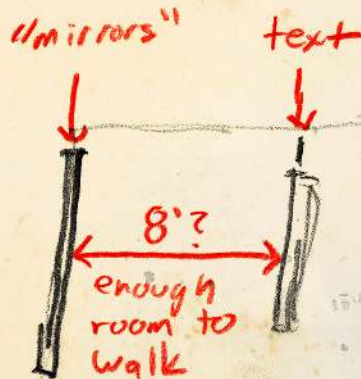 "mirrors"
text
8'?
enough
room to
walk